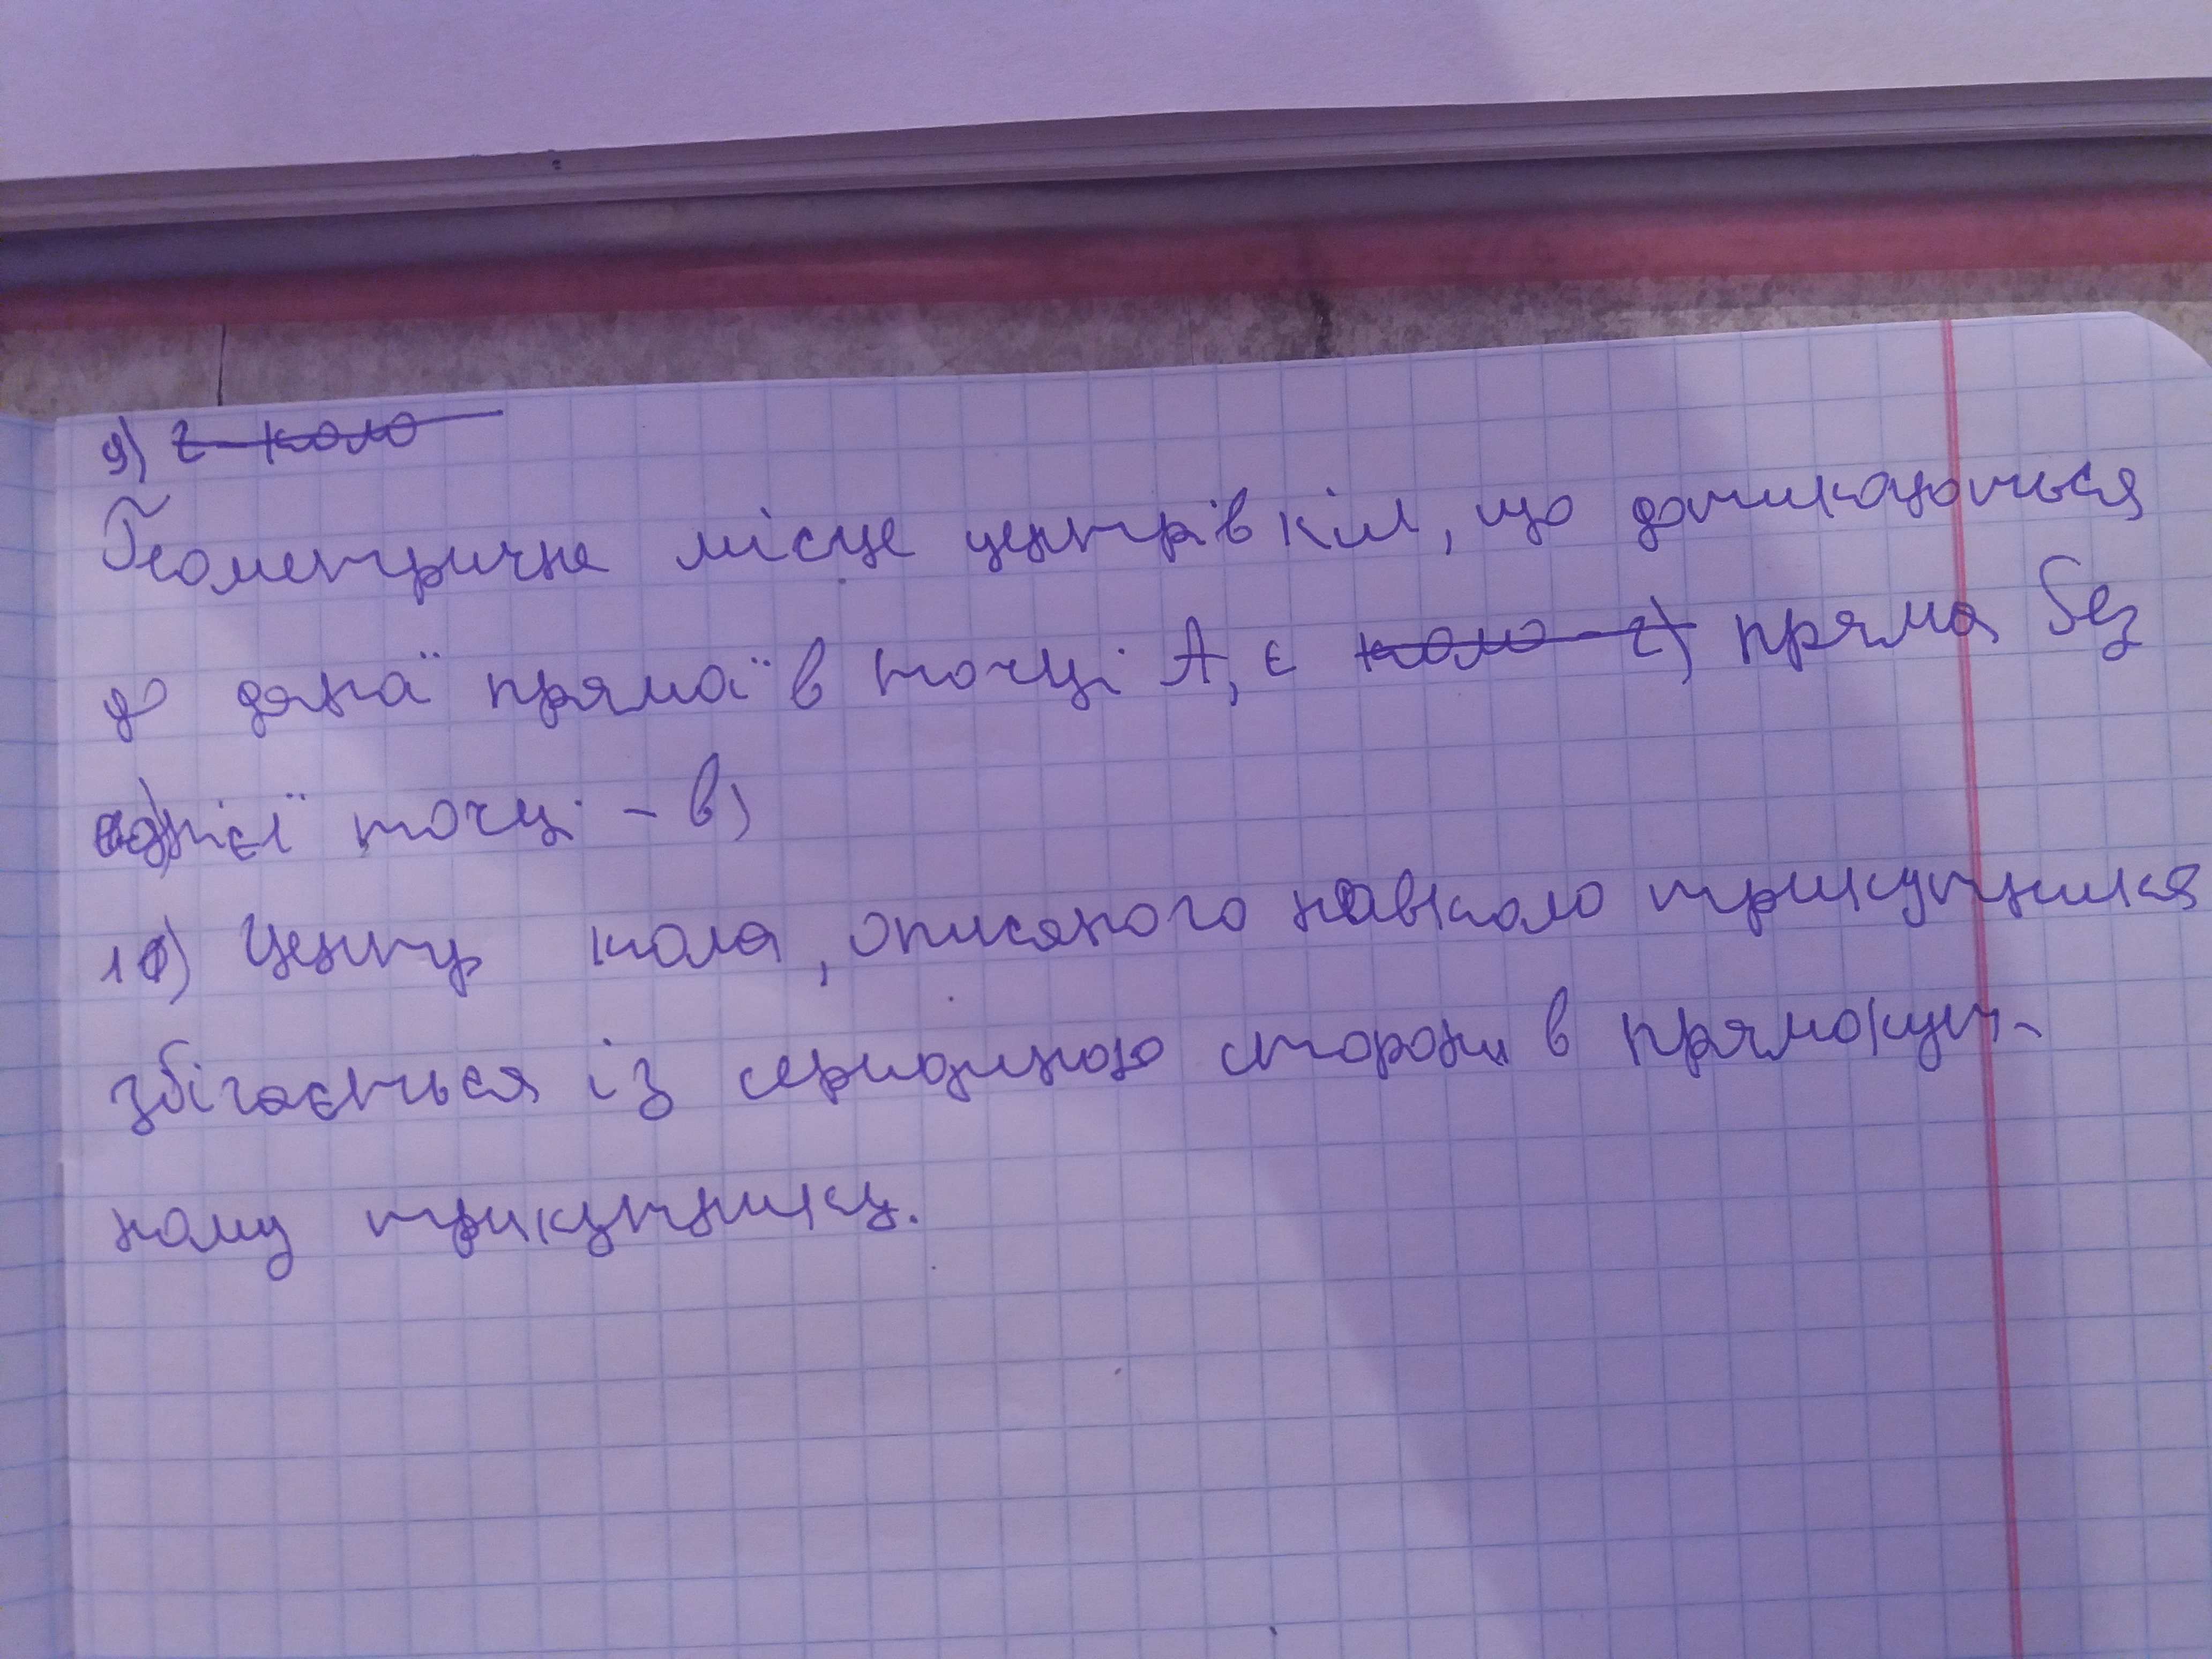 9) г - коло
Геометричне місце центрів кіл, що дотикаються
до даної прямої в точці А, є коло - г) пряма без
однієї точці - в)
10) Центр кола, описаного навколо трикутника
збігається із серединою сторони в прямокут-
ному трикутнику.